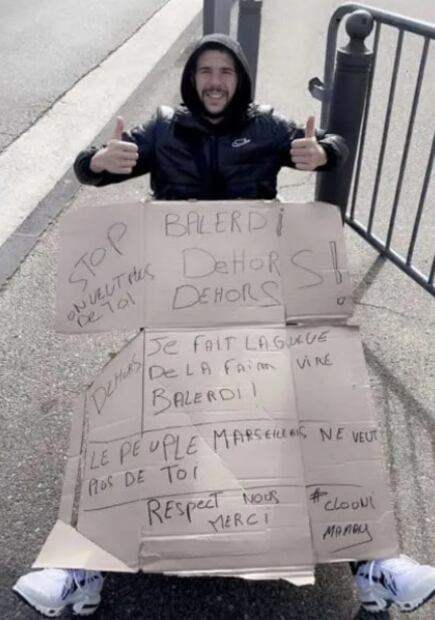 STOP
ON VEUT PLUS
DE TOI
BALERDI
DEHORS!
DEHORS
DEHORS
JE FAIT LA GREVE
DE LA FAIM VIRE
BALERDI!
LE PEUPLE MARSEILLAIS NE VEUT
PLUS DE TOI
RESPECT NOUS
MERCI
#CLOONI